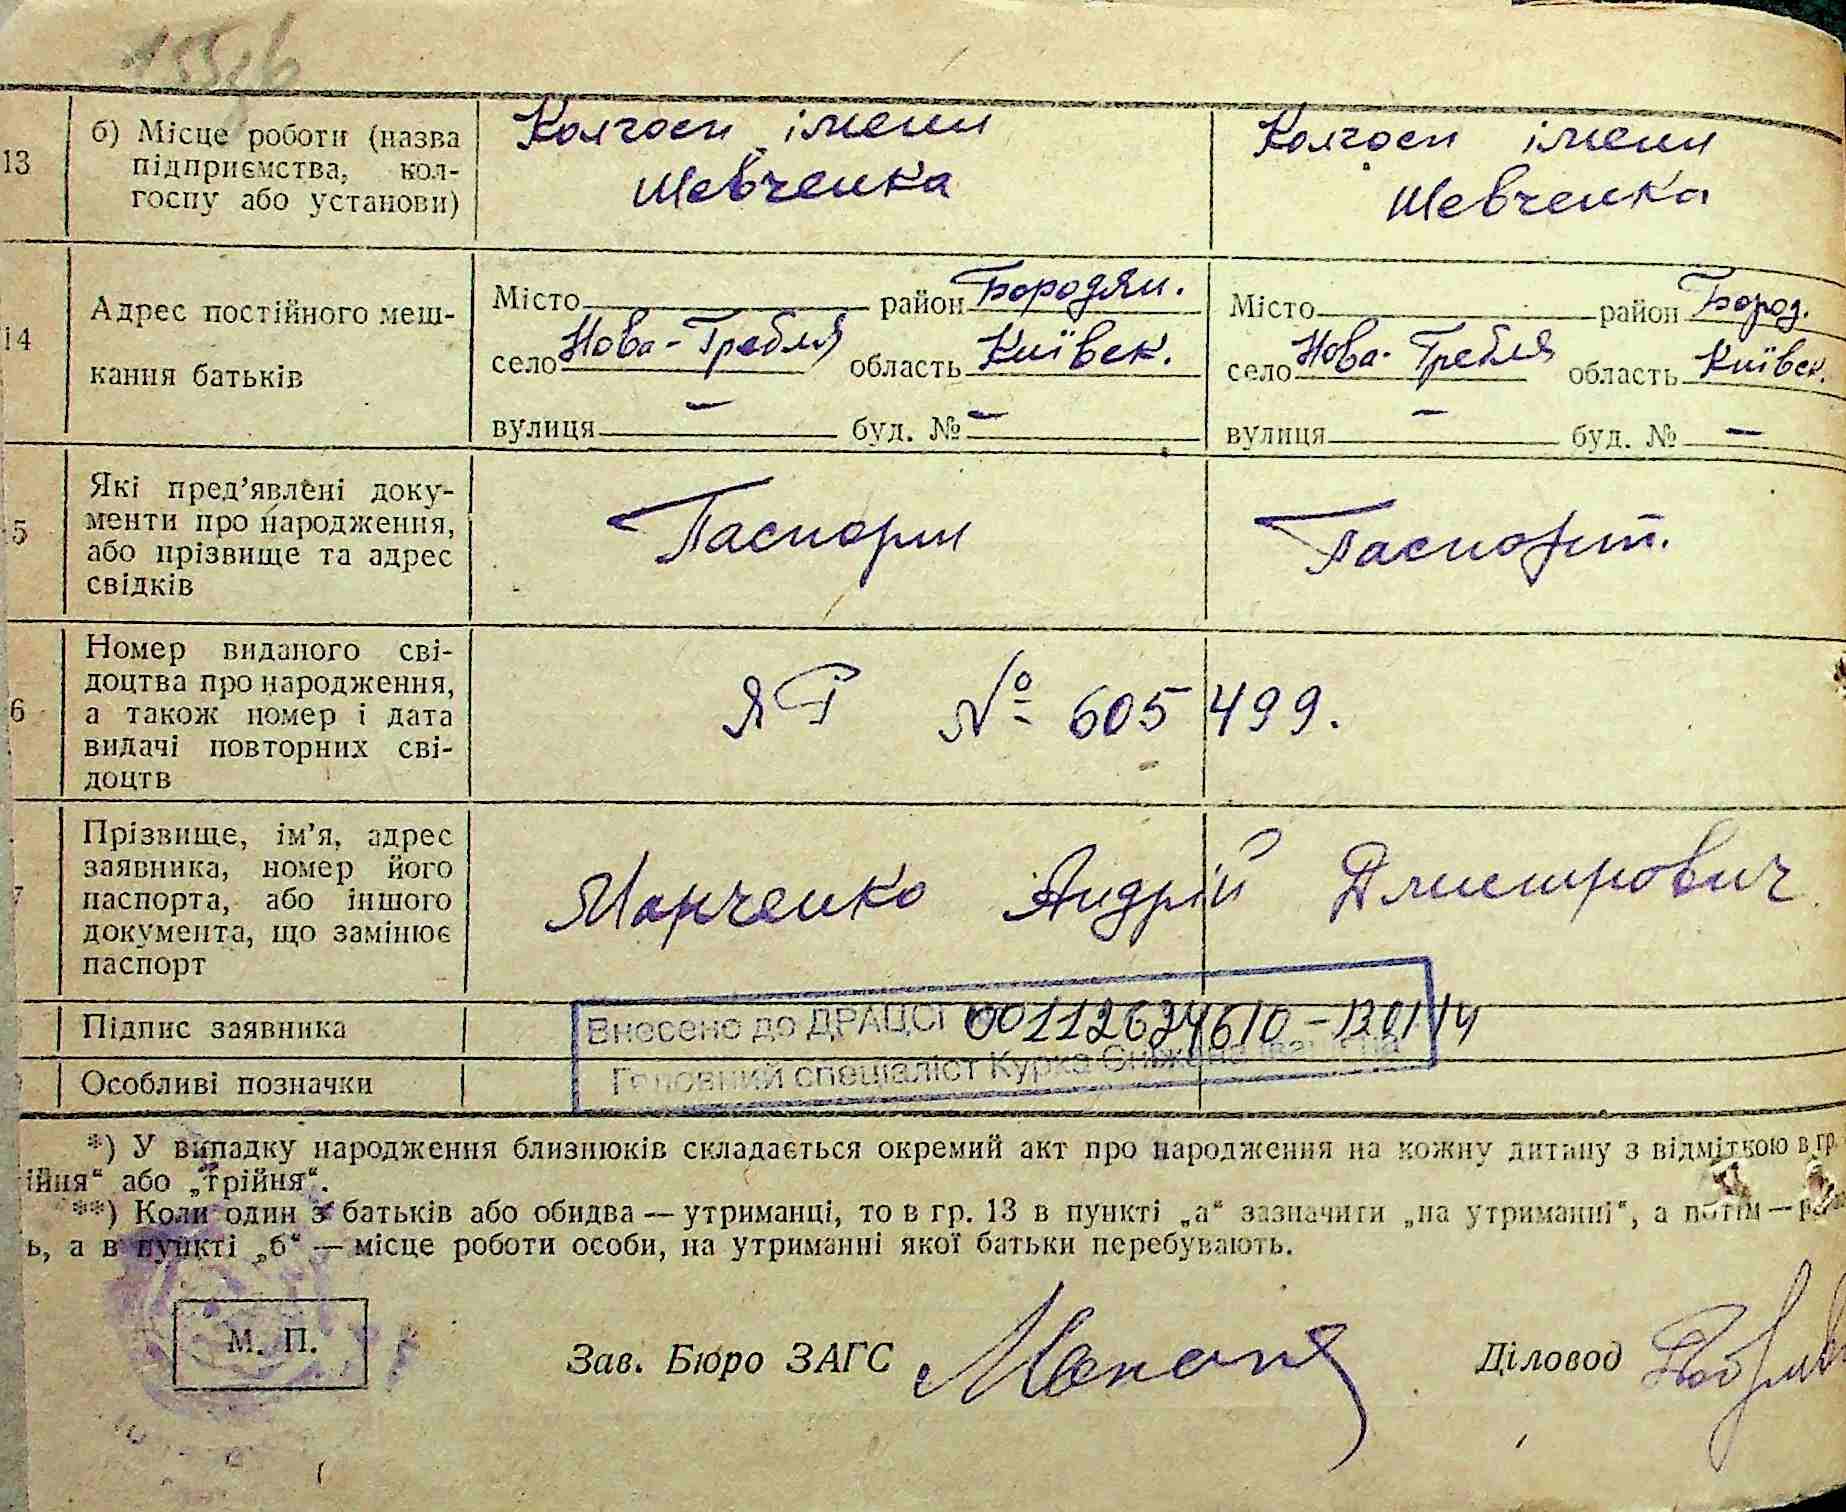 155зв
13 б) Місце роботи (назва підприємства, кол-госпу або установи)
Колгосп імени Шевченка
Колгосп імени Шевченка
14 Адрес постійного меш-кання батьків
Місто район Бородян.
село Нова-Гребля область Київск.
вулиця – буд. № –
Місто район Бород.
село Нова-Гребля область Київск.
вулиця – буд. № –
5 Які пред’явлені доку-менти про народження, або прізвище та адрес свідків
Паспорт
Паспорт.
6 Номер виданого сві-доцтва про народження, а також номер і дата видачі повторних сві-доцтв
ЯР № 605499.
7 Прізвище, ім’я, адрес заявника, номер його паспорта, або іншого документа, що замінює паспорт
Марченко Андрій Дмитрович
Підпис заявника
Внесено до ДРАЦСГ 00112624610 –
Головний спеціаліст Курка Сніжана Іванівна
Особливі позначки
*) У випадку народження близнюків складається окремий акт про народження на кожну дитину з відміткою в гр.
ійня“ або „трійня“.
**) Коли один з батьків або обидва — утриманці, то в гр. 13 в пункті „а“ зазначити „на утриманні“, а потім —
ь, а в пункті „б“ — місце роботи особи, на утриманні якої батьки перебувають.
М. П.
Зав. Бюро ЗАГС
Діловод